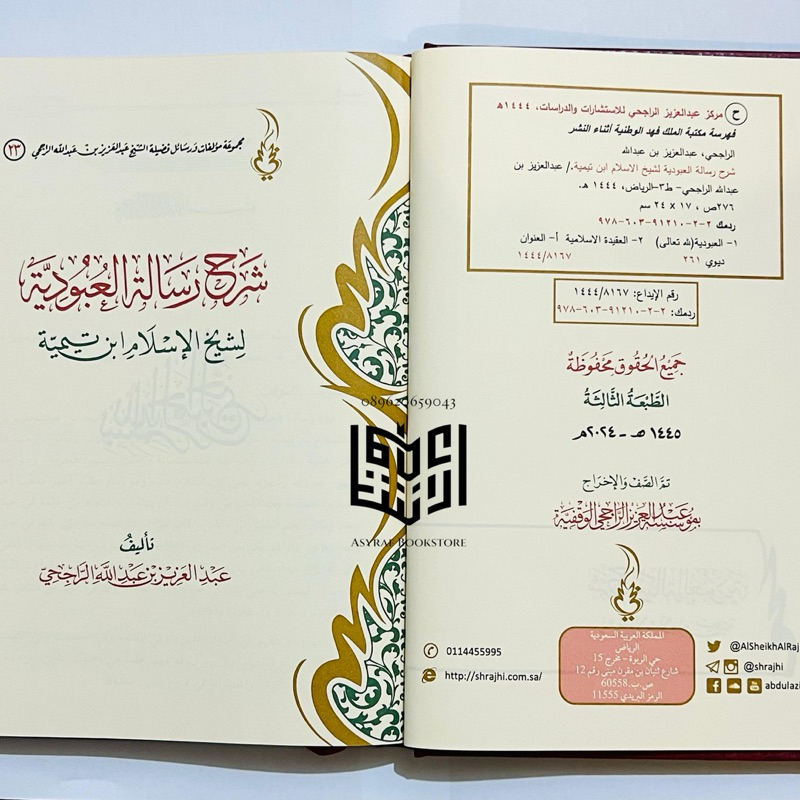 ح مركز عبدالعزيز الراجحي للاستشارات والدراسات، ١٤٤٤هـ
فهرسة مكتبة الملك فهد الوطنية أثناء النشر
الراجحي، عبدالعزيز بن عبدالله
شرح رسالة العبودية لشيخ الاسلام ابن تيمية./ عبدالعزيز بن
عبدالله الراجحي- ط٣-الرياض، ١٤٤٤ هـ.
٢٧٦ص ، ١٧ x ٢٤ سم
ردمك ٢-٢-٩١٢١٠-٦٠٣-٩٧٨
١- العبودية(لله تعالى) ٢- العقيدة الاسلامية أ- العنوان
ديوي ٢٦١ ١٤٤٤/٨١٦٧
رقم الإيداع: ١٤٤٤/٨١٦٧
ردمك: ٢-٢-٩١٢١٠-٦٠٣-٩٧٨
جميع الحقوق محفوظة
الطبعة الثالثة
١٤٤٥ هـ - ٢٠٢٤م
تم الصف والإخراج
بمؤسسة عبدالعزيز الراجحي الوقفية
المملكة العربية السعودية
الرياض
حي الربوة - مخرج 15
شارع لبنان بن مقرن مبنى رقم 12
ص.ب. 60558
الرمز البريدي 11555
0114455995
http://shrajhi.com.sa/
@AlSheikhAlRaj
@shrajhi
abdulazi
مجموعة مؤلفات ورسائل فضيلة الشيخ عبدالعزيز بن عبدالله الراجحي ٢٣
شرح رسالة العبودية
لشيخ الإسلام ابن تيمية
تأليف
عبدالعزيز بن عبدالله الراجحي
089620659043
ASYRAF BOOKSTORE